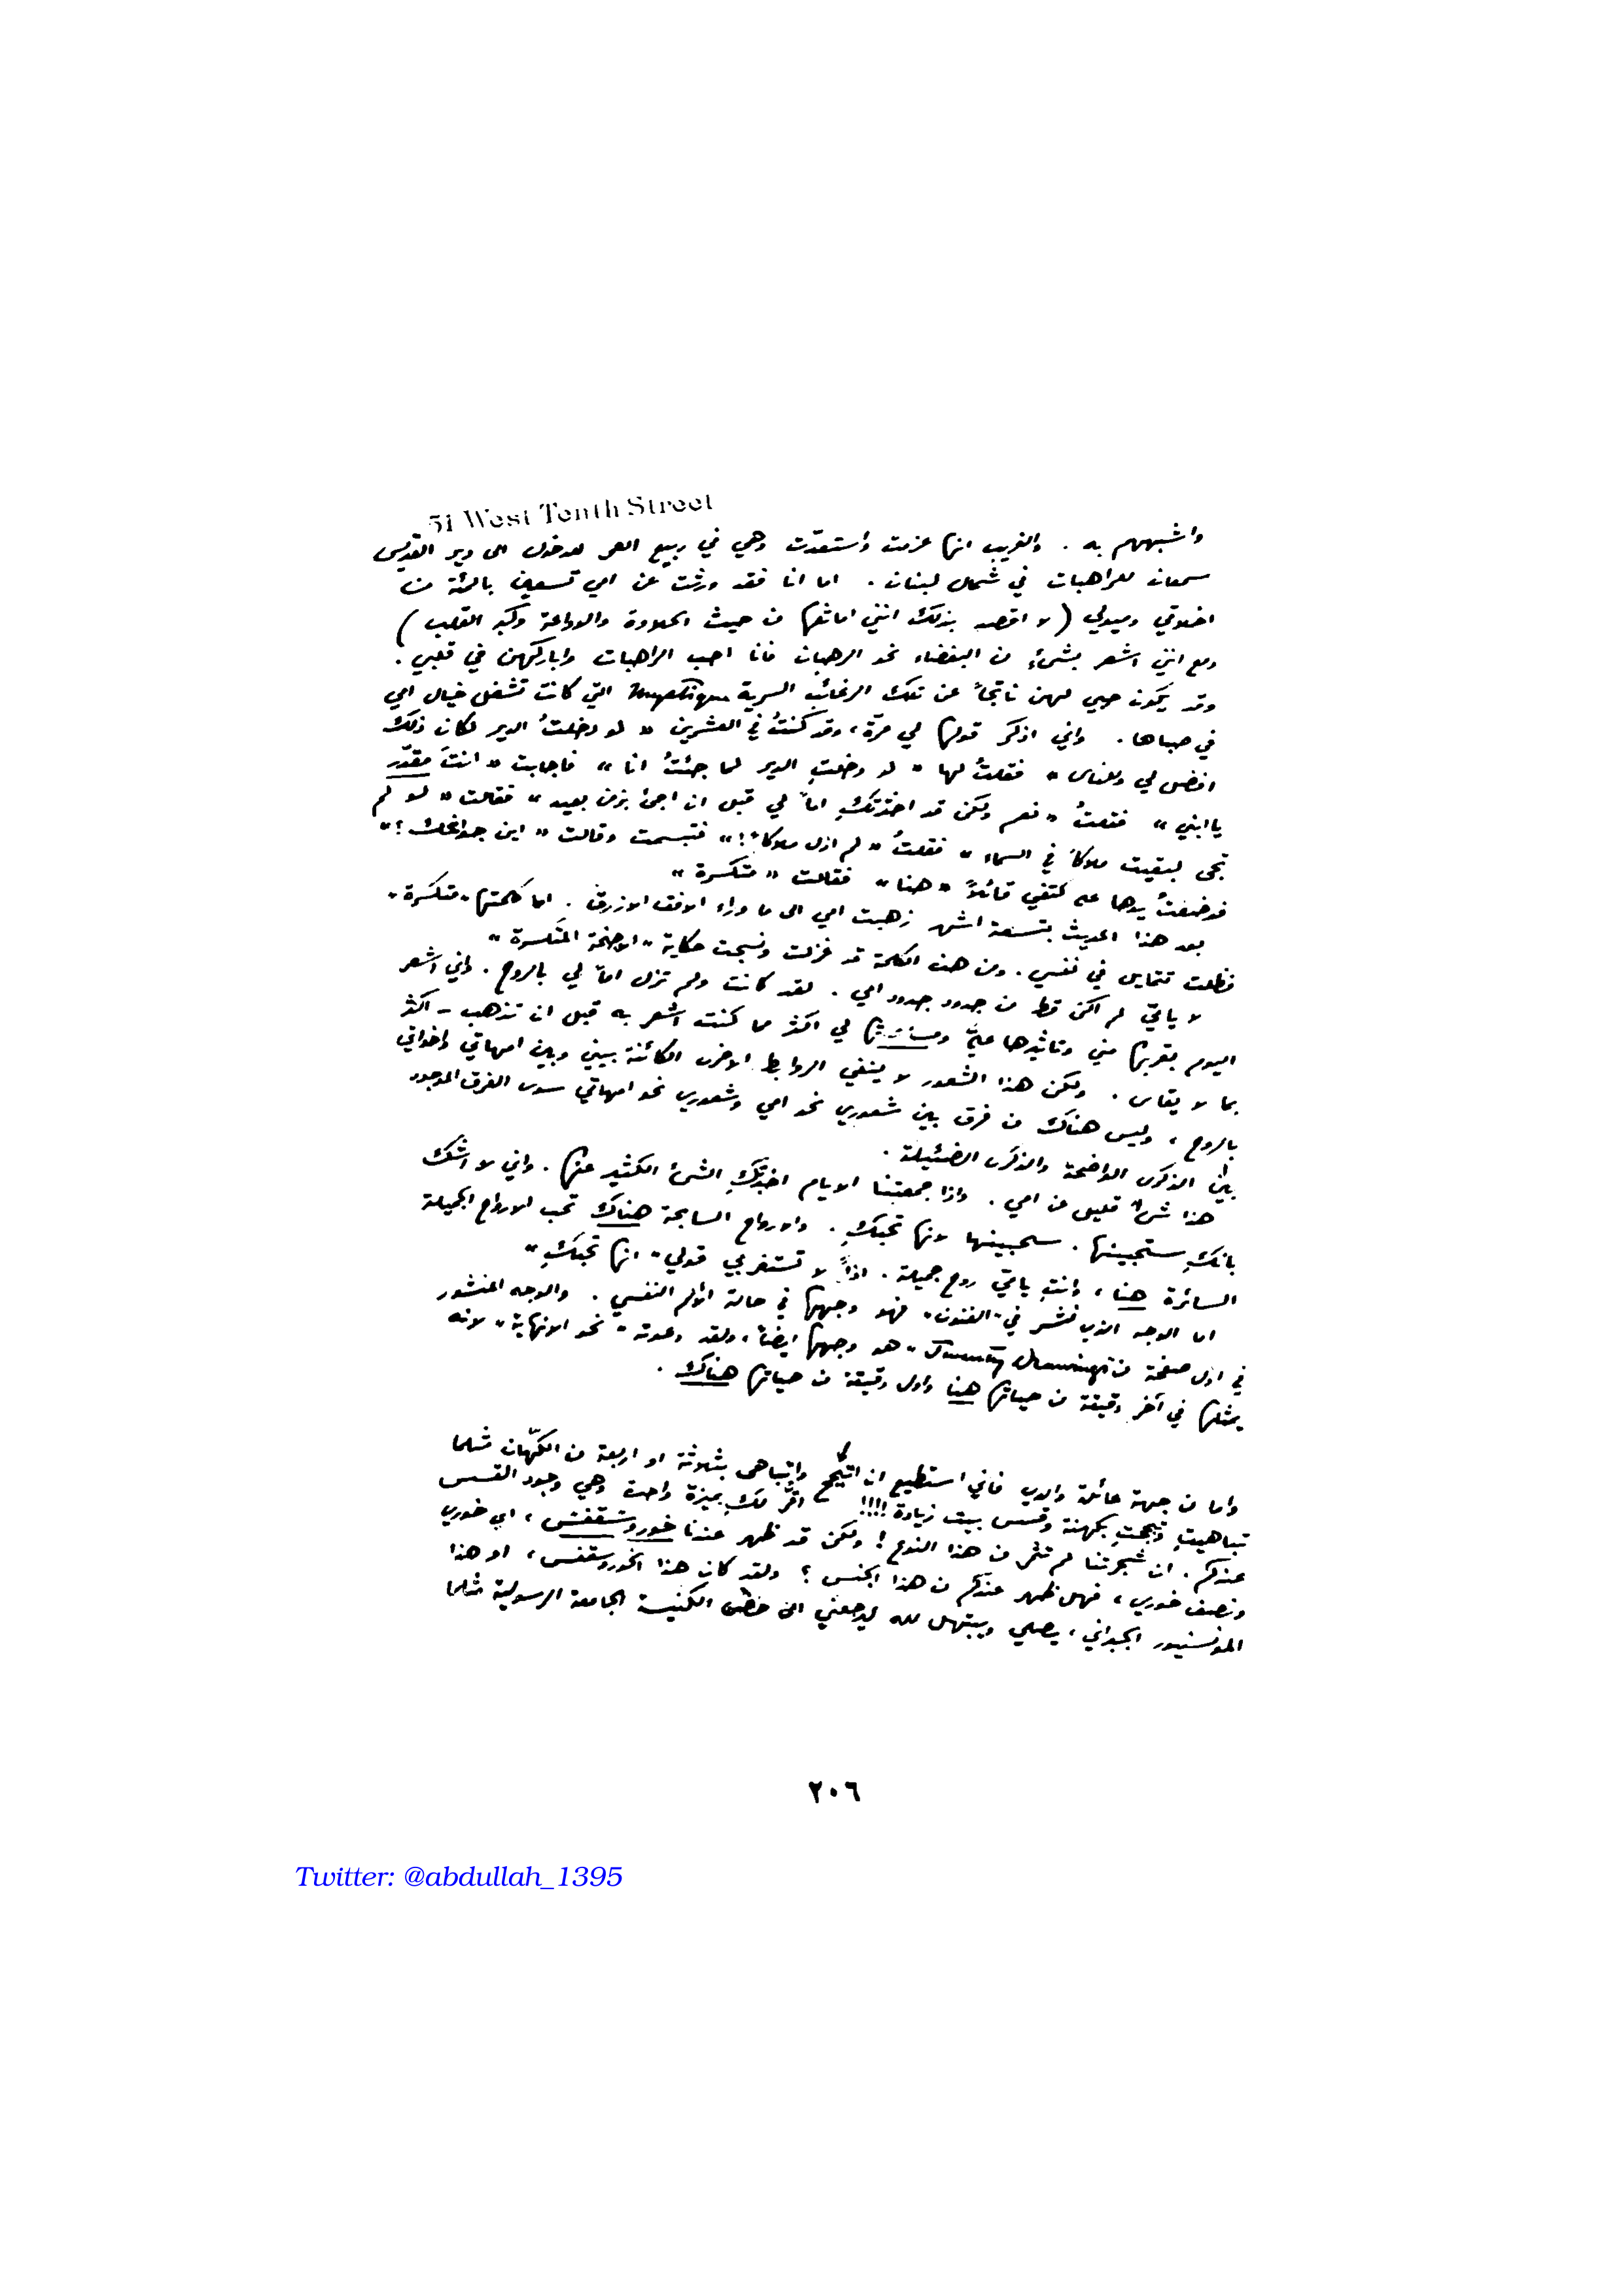 51 West Tenth Street
واشبههم به . والغريب انها عزمت واستعدّت وهي في ربيع العمر للدخول الى دير القديس
سمعان للراهبات في شمال لبنان . اما انا فقد ورثت عن امي تسعين بالمئة من
اخلاقي وميولي ( لا اقصد بذلك انني اماثلها من حيث الحلاوة والوداعة وكبر القلب )
ومع انني اشعر بشيءٍ من البغضاء نحو الرهبان فانا احب الراهبات واباركهن في قلبي .
وقد يكون حبي لهن ناتجاً عن تلك الرغائب السرية التي كانت تشغل خيال امي
في صباها . واني اذكر قولها لي مرّة ، وقد كنتُ في العشرين « لو دخلتُ الدير لكان ذلك
افضل لي وللناس » فقلتُ لها « لو دخلتِ الدير لما جئتُ انا » فاجابت « انتَ مقدّر
يا ابني » فقلتُ « نعم ولكن قد اخذتكِ اماً لي قبل ان اجئ بزمن بعيد » فقالت « لو لم
تجئ لبقيت ملاكاً في السماء » فقلتُ « لم ازل ملاكاً ! » فتبسمت وقالت « اين جوانحك ؟ »
فوضعتُ يدها على كتفي قائلاً « هنا » فقالت « متكسرة »
بعد هذا الحديث بتسعة اشهر ذهبت امي الى ما وراء الافق الازرق . اما كلمتها « متكسّرة »
فظلت تتمايل في نفسي . ومن هذه الكلمة قد غزلت ونسجت حكاية « الاجنحة المتكسرة »
لا يا ميّ لم اكن قط من جدود جدود امي . لقد كانت ولم تزل اماً لي بالروح . واني اشعر
اليوم بقربها مني وتاثيرها عليّ ومساعدتها لي اكثر مما كنت اشعر به قبل ان تذهب - اكثر
بما لا يقاس . ولكن هذا الشعور لا ينفي الروابط الاخرى الكائنة بيني وبين امهاتي واخواتي
بالروح ، وليس هناك من فرق بين شعوري نحو امي وشعوري نحو امهاتي سوى الفرق الموجود
بين الذكرى الواضحة والذكرى الضئيلة .
هذا شئ قليل عن امي . واذا جمعتنا الايام اخبرتكِ الشئ الكثير عنها . واني لا اشك
بانكِ ستحبينها . ستحبينها لانها تحبكِ . والارواح السابحة هناك تحب الارواح الجميلة
السائرة هنا ، وانتِ يا ميّ روح جميلة . اذاً لا تستغربي قولي « انها تحبكِ »
اما الوجه الذي نشر في « الفنون » فهو وجهها في حالة الألم النفسي . والوجه المنشور
في اول صفحة من Twenty Drawings هو وجهها ايضاً ، ولقد دعوته « نحو اللانهاية » لانه
يمثلها في آخر دقيقة من حياتها هنا واول دقيقة من حياتها هناك .
واما من جهة عائلة والدي فاني استطيع ان اتبجّح واتباهى بثلاثة او اربعة من الكهّان مثلما
تباهيتِ وتبجحتِ بكهنة وقسس بيت زيادة !!!! اقرّ لكِ بميزة واحدة وهي وجود القسس
عندكم . ان شجرتنا لم تثمر من هذا النوع ! ولكن قد ظهر عندنا خوروسقفس ، اي خوري
ونصف خوري ، فهل ظهر عندكم من هذا الجنس ؟ ولقد كان هذا الخوروسقفس ، او هذا
المونسنيور الجبراني ، يصلي ويبتهل لله ليرجعني الى حضن الكنيسة الجامعة الرسولية مثلما
٢٠٦
Twitter: @abdullah_1395